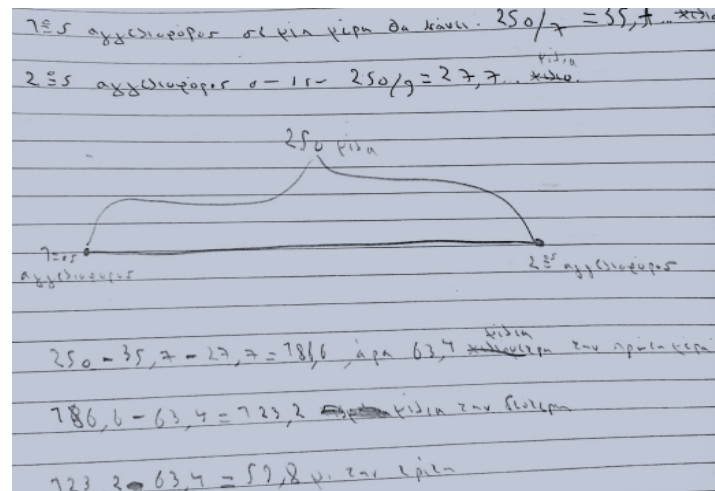 1ος αγγελιοφόρος σε μία μέρα θα κάνει. 250/7 = 35,7...
2ος αγγελιοφόρος 250/9 = 27,7... μίλια
250 μίλια
1ος αγγελιοφόρος
2ος αγγελιοφόρος
250 - 35,7 - 27,7 = 186,6 άρα 63,4 μίλια την πρώτη μέρα
186,6 - 63,4 = 123,2 μίλια την δεύτερη
123,2 - 63,4 = 59,8 μι. την τρίτη